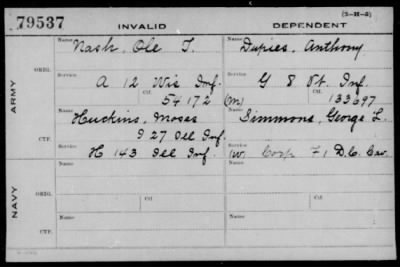 (3-H-3)
79537
INVALID DEPENDENT
ARMY
ORIG.
Name Nash, Ole T.
Service A 12 Wis Inf.
Ctf. 54172
Name Dupies, Anthony
Service G 8 Vt. Inf.
Ctf. (M) 133697
CTF.
Name Huckins, Moses
I 27 Ill Inf.
Service H 143 Ill Inf.
Name Simmons, George L.
Service (W. Corp F 1 D.C. Cav.
NAVY
ORIG.
Name
Service
Ctf.
Name
Service
Ctf.
CTF.
Name
Service
Name
Service